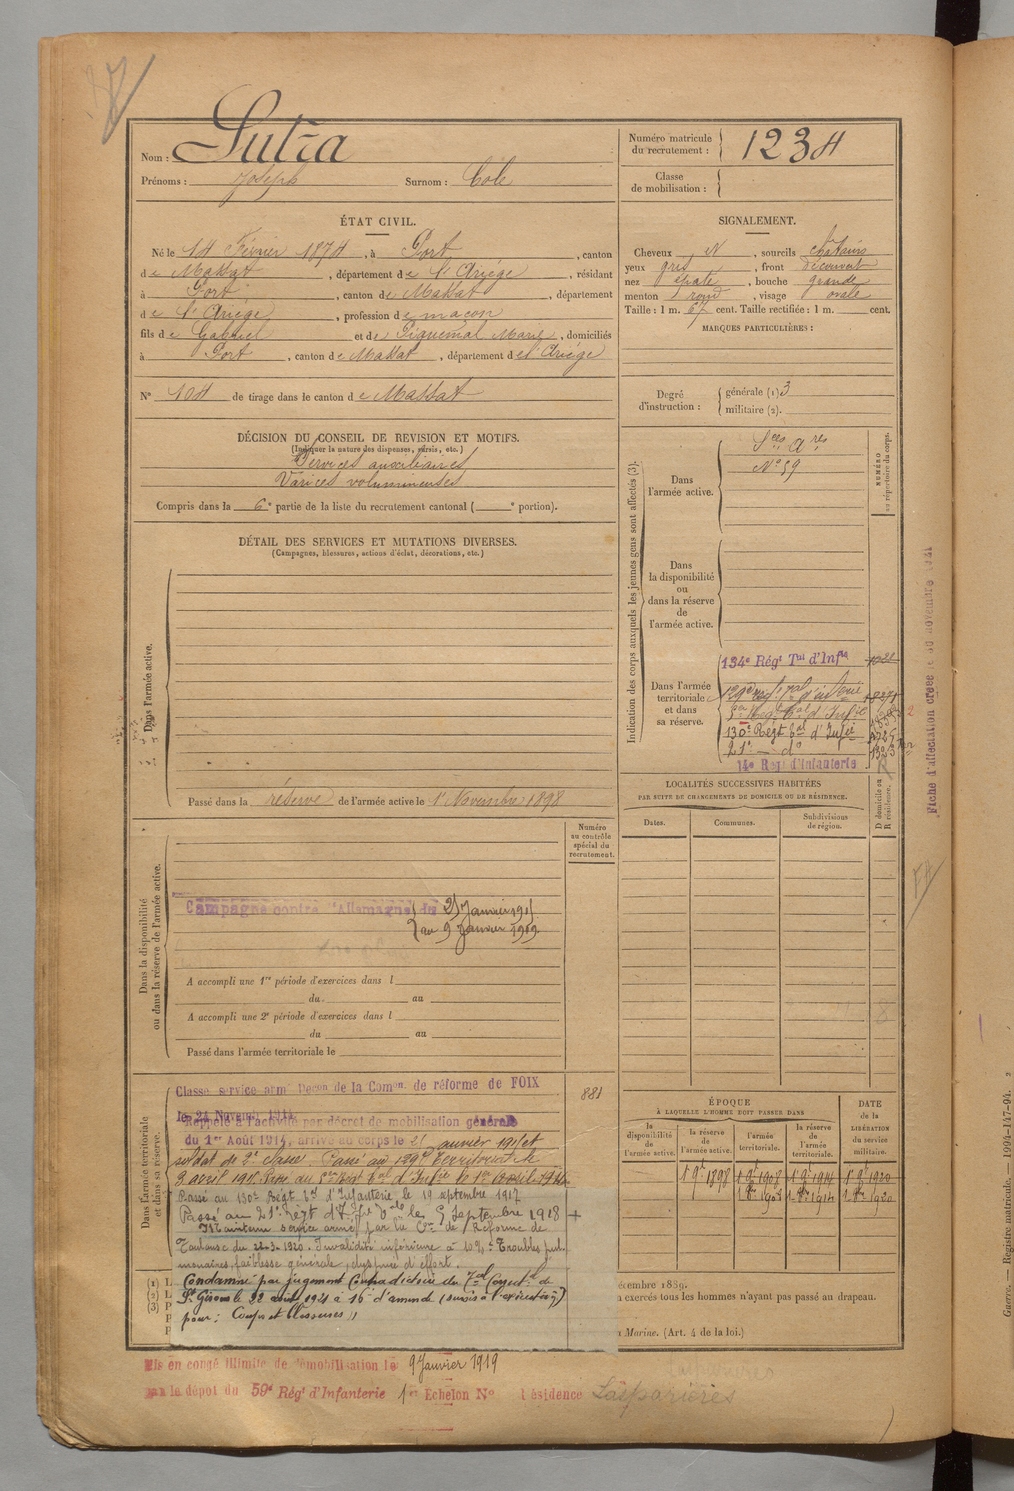 Nom : Sutra
Prénoms : Joseph Surnom : Cole
Numéro matricule du recrutement : 1234
Classe de mobilisation :
ÉTAT CIVIL.
Né le 14 Février 1874, à Port, canton
de Massat, département de l'Ariège, résidant
à Port, canton de Massat, département
de l'Ariège, profession de maçon
fils de Gabriel et de Piquemal Marie, domiciliés
à Port, canton de Massat, département de l'Ariège
N° 104 de tirage dans le canton de Massat
SIGNALEMENT.
Cheveux N, sourcils châtains
yeux gris, front découvert
nez épaté, bouche grande
menton rond, visage ovale
Taille : 1 m. 67 cent. Taille rectifiée : 1 m. cent.
MARQUES PARTICULIÈRES :
Degré d'instruction : générale (1) 3
militaire (2).
DÉCISION DU CONSEIL DE REVISION ET MOTIFS.
(Indiquer la nature des dispenses, sursis, etc.)
Services auxiliaires
Varices volumineuses
Compris dans la 6e partie de la liste du recrutement cantonal ( e portion).
DÉTAIL DES SERVICES ET MUTATIONS DIVERSES.
(Campagnes, blessures, actions d'éclat, décorations, etc.)
Dans l'armée active.
Passé dans la réserve de l'armée active le 1er Novembre 1898
Indication des corps auxquels les jeunes gens sont affectés (3).
NUMÉRO au répertoire du corps.
Dans l'armée active.
Sces Ares
N° 59
Dans la disponibilité ou dans la réserve de l'armée active.
Dans l'armée territoriale et dans sa réserve.
134e Régt Tal d'Infie
129e régt tal d'infanie
5e Régt tal d'Infie
130e Régt tal d'Infie
21e — do
14e Régt d'Infanterie
LOCALITÉS SUCCESSIVES HABITÉES
PAR SUITE DE CHANGEMENTS DE DOMICILE OU DE RÉSIDENCE.
Dates. Communes. Subdivisions de région.
D domicile ou R résidence.
Fiche d'affectation créée le 30 novembre 1921
Dans la disponibilité ou dans la réserve de l'armée active.
Numéro au contrôle spécial du recrutement.
Campagne contre l'Allemagne du 21 Janvier 1915
au 9 Janvier 1919
A accompli une 1re période d'exercices dans l
du au
A accompli une 2e période d'exercices dans l
du au
Passé dans l'armée territoriale le
Dans l'armée territoriale et dans sa réserve.
881
Classé service armé Décon de la Comon de réforme de FOIX
le 24 Novembre 1914
Rappelé à l'activité par décret de mobilisation générale
du 1er Août 1914, arrivé au corps le 21 janvier 1915 et
soldat de 2e classe. Passé au 129e Territorial le
Passé au 130e Régt tal d'Infanterie le 19 septembre 1917
Passé au 21e Régt d'Infie Tale le 5 Septembre 1918
Maintenu service armé par la Con de Réforme de
Toulouse du 22-3-1920. Invalidité inférieure à 10 % : Troubles pul-
monaires, faiblesse générale, dyspnée d'effort.
Condamné par jugement contradictoire du Tal Correctel de
St Girons le 22 août 1921 à 16f d'amende (sursis à l'exécution)
pour : Coups et blessures
ÉPOQUE
À LAQUELLE L'HOMME DOIT PASSER DANS
la disponibilité de l'armée active. la réserve de l'armée active. l'armée territoriale. la réserve de l'armée territoriale.
DATE de la LIBÉRATION du service militaire.
1 9e 1898 1 9e 1908 1 9e 1914 1 9e 1920
(1) (2) (3)
écembre 1889.
exercés tous les hommes n'ayant pas passé au drapeau.
Marine. (Art. 4 de la loi.)
Mis en congé illimité de démobilisation le 9 Janvier 1919
par le dépôt du 59e Régt d'Infanterie 1er Echelon N° Résidence
Guerre. — Registre matricule. — 1994-147-94.